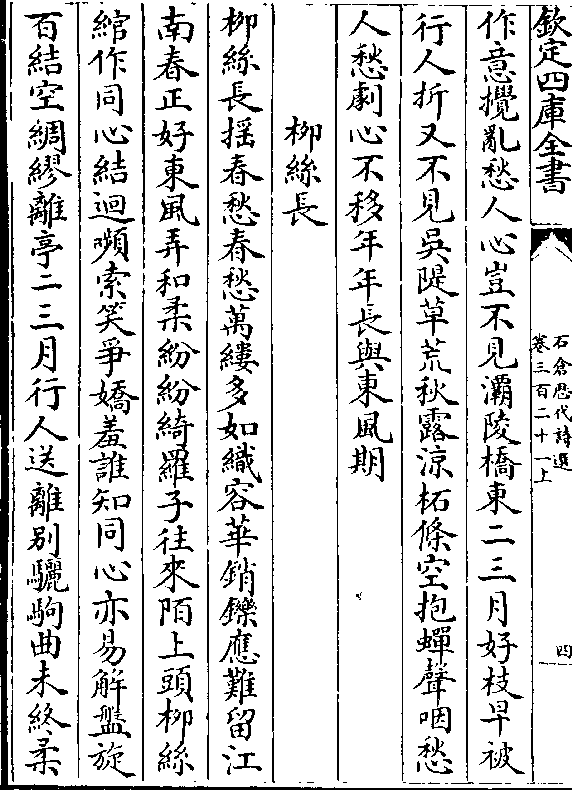 欽定四庫全書
石倉歷代詩選
卷三百二十一上
四
作意攪亂愁人心豈不見灞陵橋東二三月好枝早被
行人折又不見吳隄草荒秋露涼柘條空抱蟬聲咽愁
人愁劇心不移年年長與東風期
栁絲長
栁絲長揺春愁春愁萬縷多如織容華銷鑠應難留江
南春正好東風弄和柔紛紛綺羅子往來陌上頭栁絲
綰作同心結迴嚬索笑爭嬌羞誰知同心亦易解盤旋
百結空綢繆離亭二三月行人送離别驪駒曲未終柔